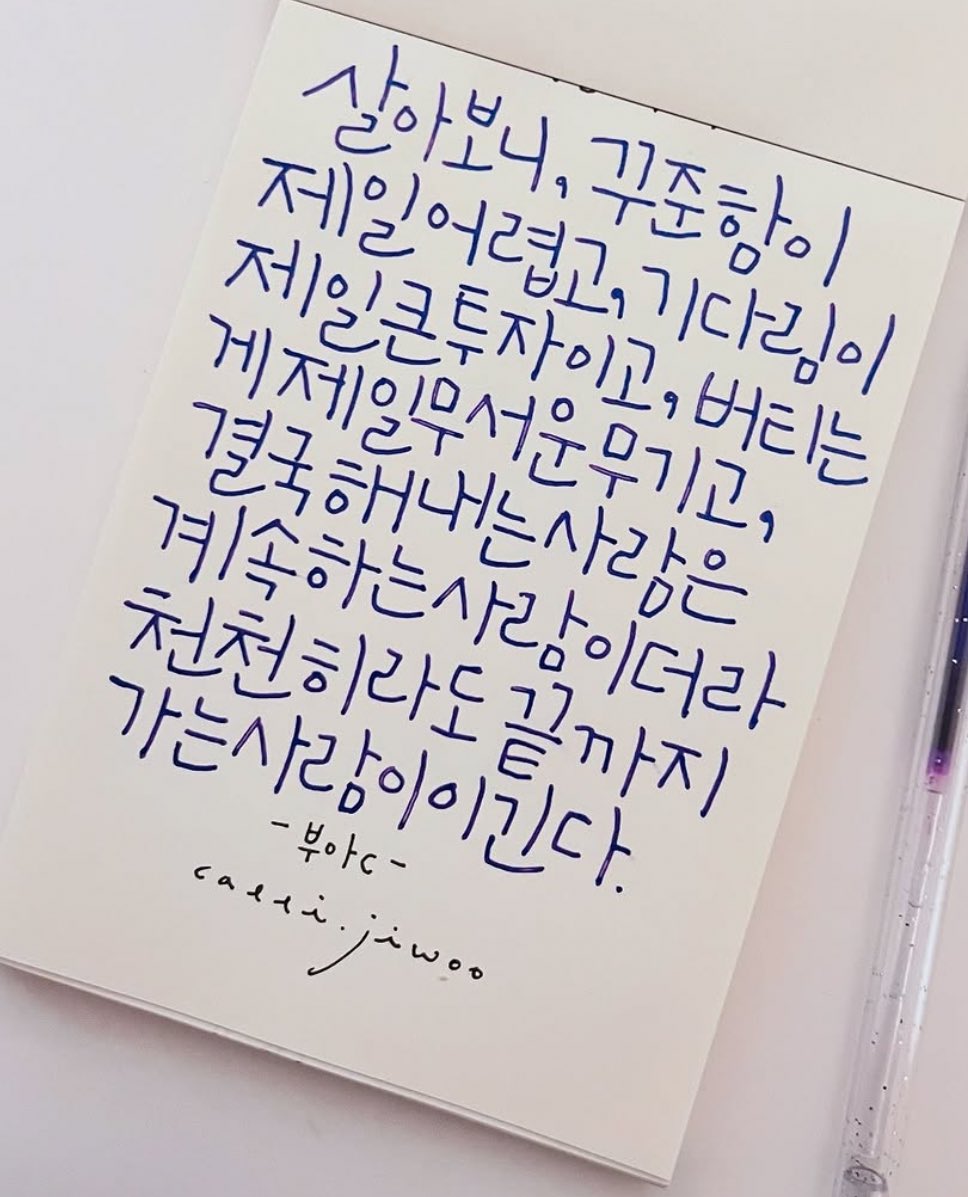 살아보니, 꾸준함이
제일 어렵고, 기다림이
제일 큰 투자이고, 버티는
게 제일 무서운 무기고,
결국 해내는 사람은
계속하는 사람이더라
천천히라도 끝까지
가는 사람이 이긴다.
-부아c-
calli.jiwoo